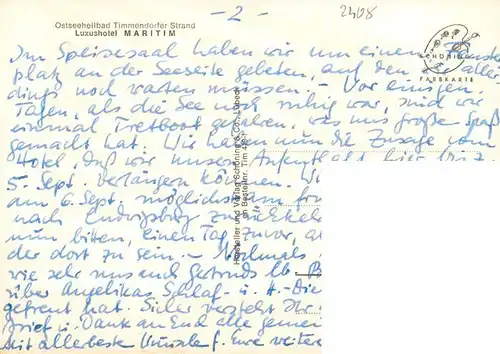 - 2 -
2408
Ostseeheilbad Timmendorfer Strand
Luxushotel MARITIM
SCHÖNING
FARBKARTE
Im Speisesaal haben wir um einen Fenster
platz an der Seeseite gebeten, auf den aller
dings noch warten müssen. - Vor einigen
Tagen, als die See noch ruhig war, sind wir
einmal Tretboot gefahren, was uns großen Spaß
gemacht hat. Wir haben nun die Zusage vom
Hotel, daß wir unseren Aufenthalt hier bis z
5. Sept. verlängern können. W
am 6. Sept. möglichst
nach Ludwigsburg
nun bitten, einen Tag zuvor, a
der dort zu sein. - Nochmals
wie sehr uns auch Gertruds
über Angelikas Schlaf- u.
gefreut hat.
Brief u. Dank am End alle
Mit allerbesten f. Eure weitere
Hersteller und Verlag Schöning & Co., Lübeck
Bestellnr. Tim